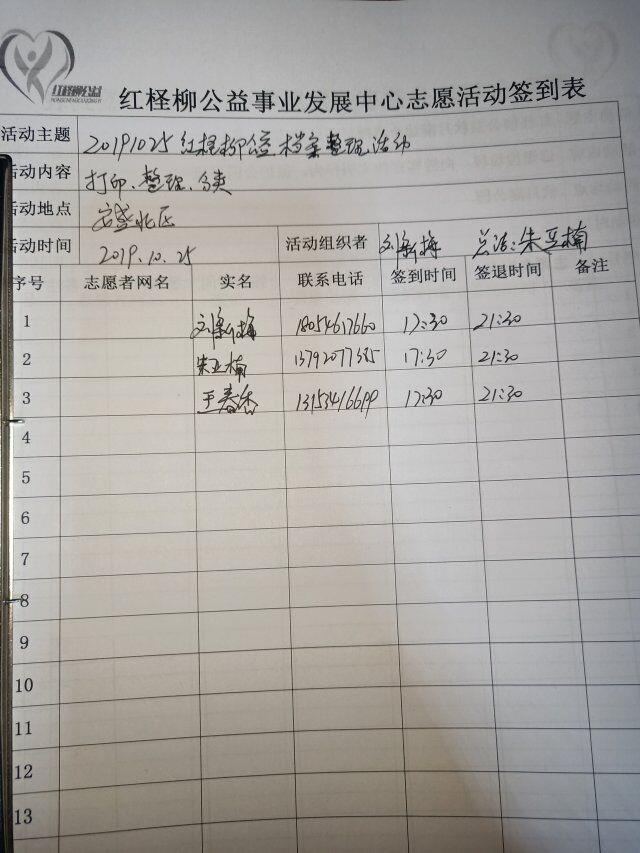 红柽柳公益
红柽柳公益事业发展中心志愿活动签到表
活动主题 20191025红柽柳公益档案整理活动
活动内容 打印、整理、分类
活动地点 安盛北区
活动时间 2019.10.25 活动组织者 刘新梅 总结:朱亚楠
序号 志愿者网名 实名 联系电话 签到时间 签退时间 备注
1 刘新梅 18054617660 17:30 21:30
2 朱亚楠 17:30 21:30
3 王春香 17:30 21:30
4
5
6
7
8
9
10
11
12
13